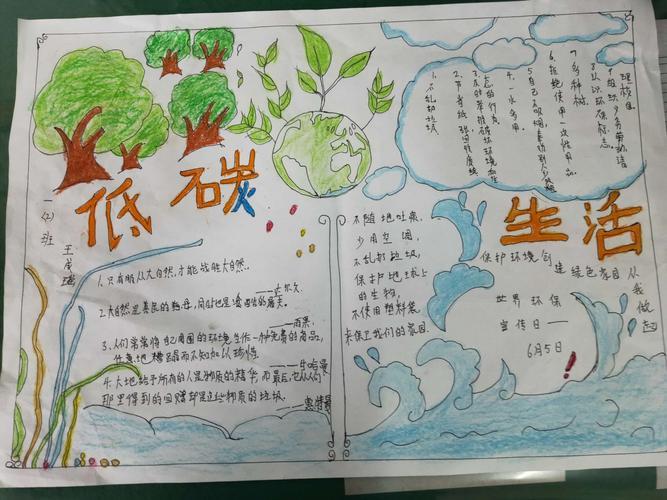 低碳
生活
一(2)班
1.只有服从大自然,才能战胜大自然。
——达尔文
2.大自然是善良的慈母,同时也是冷酷的屠夫。
——雨果
3.人们常常将自己周围的环境当作一种免费的商品,
任意地糟蹋而不知加以珍惜
——
4.大地给予所有的人是物质的精华,而最后,它从人们
那里得到的回赠却是这些物质的垃圾。
——惠特曼
不随地吐痰,
少用空调,
不乱扔垃圾,
保护地球上
的生物,
不使用塑料袋
来保卫我们的家园。
1.不乱扔垃圾
2.节约纸张
4.一水多用
5.自己不吸烟,奉劝别人少吸烟
6.拒绝使用一次性用品
7.多种树
8.认识环保标志。
保护环境创建绿色家园从我做起
世界环保
宣传日——
6月5日